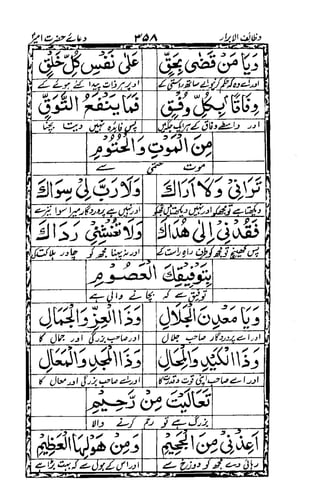 وظائف الابرار ۳۵۸ دعائے حضرت امیر
وَيَا مَنْ قَضٰى بِحَقٍّ عَلٰى نَفْسِ كُلِّ خَلْقٍ
اور اے وہ کہ حکم کیا ساتھ راستی کے اوپر ہر ذات پیدا کئے ہوئے کے
وَفَاقًا بِكُلِّ وُفْقٍ فَمَا يَنْفَعُ التَّوَقِّي
اور واسطے وفاق کے پس فائدہ نہیں دیتا بچنا
مِنَ الْمَوْتِ وَالْحُتُوْمِ
موت حتمی سے
تَرَانِيْ وَلَا اَرَاكَ وَلَا رَبَّ لِيْ سِوَاكَ
دیکھتا ہے تو مجھکو اور نہیں دیکھتا میں تجھکو اور نہیں ہے پروردگار میرا سوا تیرے
فَقُدْنِيْ اِلٰى هُدَاكَ وَلَا تَغْشَنِيْ رَدَاكَ
پس کھینچ تو مجھ کو طرف راہ راست کے اور نہ پہنا مجھ کو چادر ہلاکت کی
بِتَوْفِيْقِكَ الْعَصُوْمِ
توفیق سے کہ بچانے والی ہے
وَيَا مَعْدِنَ الْجَلَالِ وَذَا الْعِزِّ وَالْجَمَالِ
اور اے پروردگار صاحب جلال اور صاحب بزرگی اور جمال کا
وَذَا الْكَيْدِ وَالْمِحَالِ وَذَا الْمَجْدِ وَالْمَعَالِ
اور اے صاحب اور اے صاحب بزرگی اور معال کا
تَعَالَيْتَ مِنْ رَّحِيْمٍ
بزرگ ہے تو رحم کرنے والا
اَعِذْنِيْ مِنَ الْجَحِيْمِ وَمِنْ هَوْلِهَا الْعَظِيْمِ
رہائی دے مجھ کو دوزخ سے اور اس کے ہول سے کہ بہت بڑا ہے